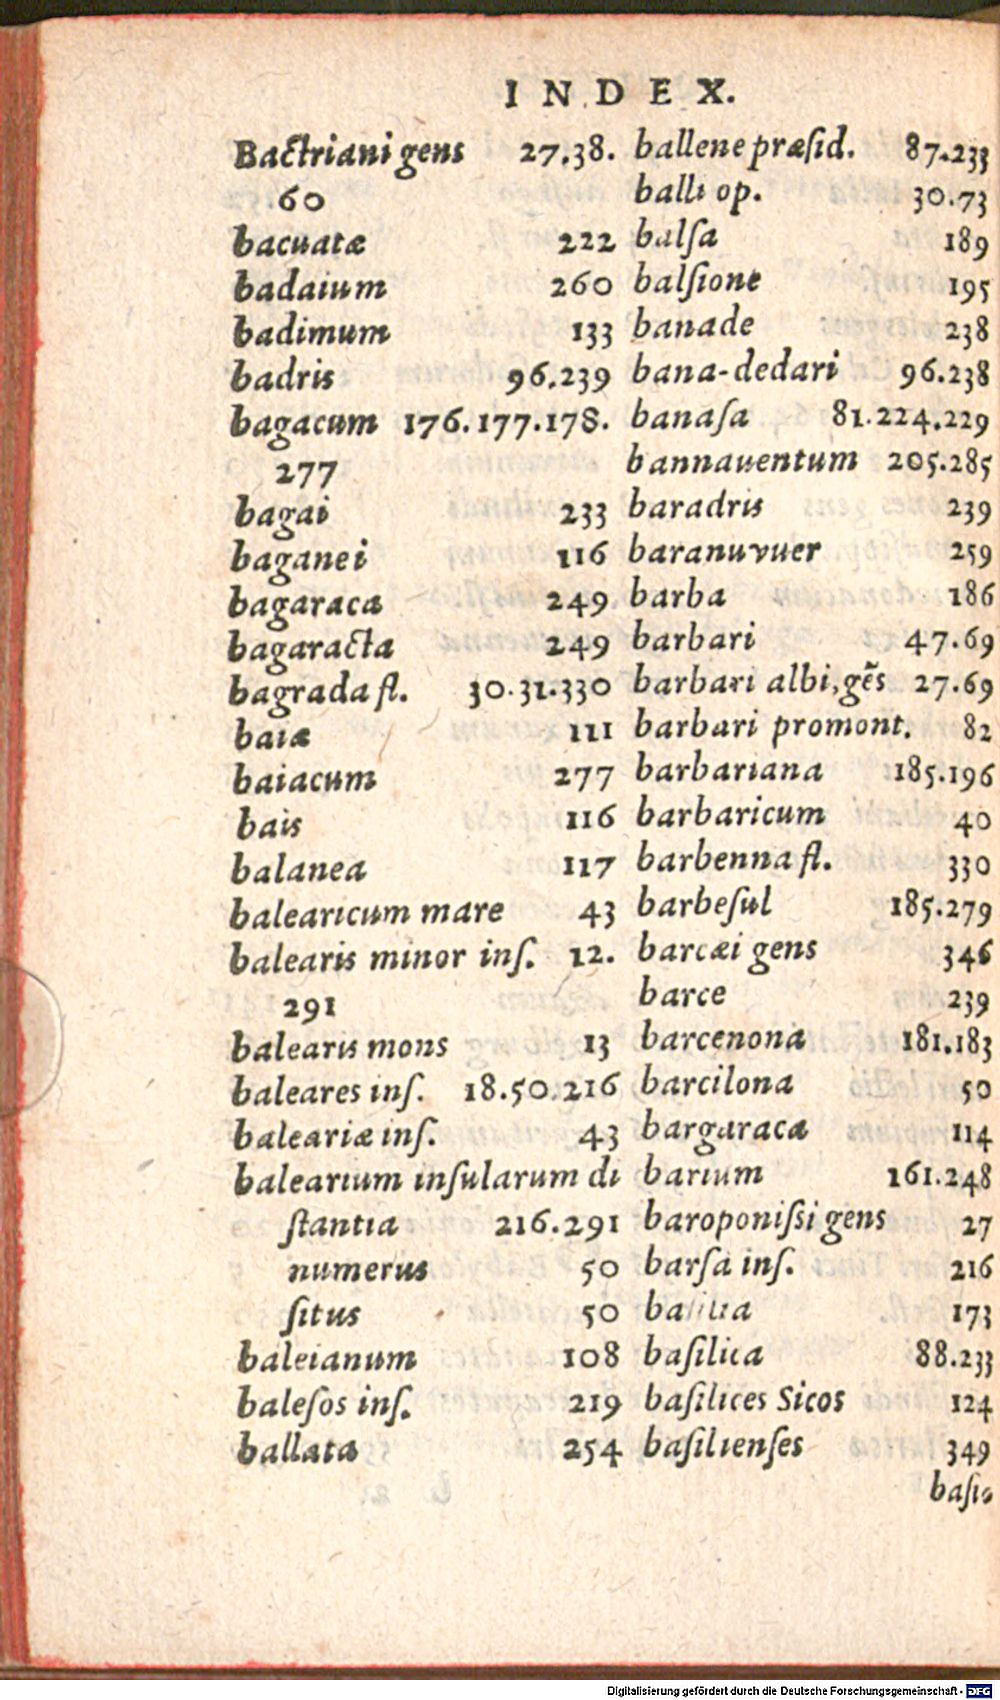 INDEX.
Bactriani gens 27.38.
60
bacuatæ 222
badaium 260
badimum 133
badris 96.239
bagacum 176.177.178.
277
bagai 233
baganei 116
bagaraca 249
bagaracta 249
bagrada fl. 30.31.330
baiæ 111
baiacum 277
bais 116
balanea 117
balearicum mare 43
balearis minor inſ. 12.
291
balearis mons 13
baleares inſ. 18.50.216
baleariæ inſ. 43
balearium inſularum di
ſtantia 216.291
numerus 50
ſitus 50
baleianum 108
baleſos inſ. 219
ballata 254
ballene præſid. 87.233
balli op. 30.73
balſa 189
balſione 195
banade 238
bana-dedari 96.238
banaſa 81.224.229
bannauentum 205.285
baradris 239
baranuvuer 259
barba 186
barbari 47.69
barbari albi, gẽs 27.69
barbari promont. 82
barbariana 185.196
barbaricum 40
barbenna fl. 330
barbeſul 185.279
barcæi gens 346
barce 239
barcenona 181.183
barcilona 50
bargaraca 114
barium 161.248
baroponiſsi gens 27
barſa inſ. 216
173
baſilica 88.233
baſilices Sicos 124
baſilienſes 349
Digitalisierung gefördert durch die Deutsche Forschungsgemeinschaft - DFG